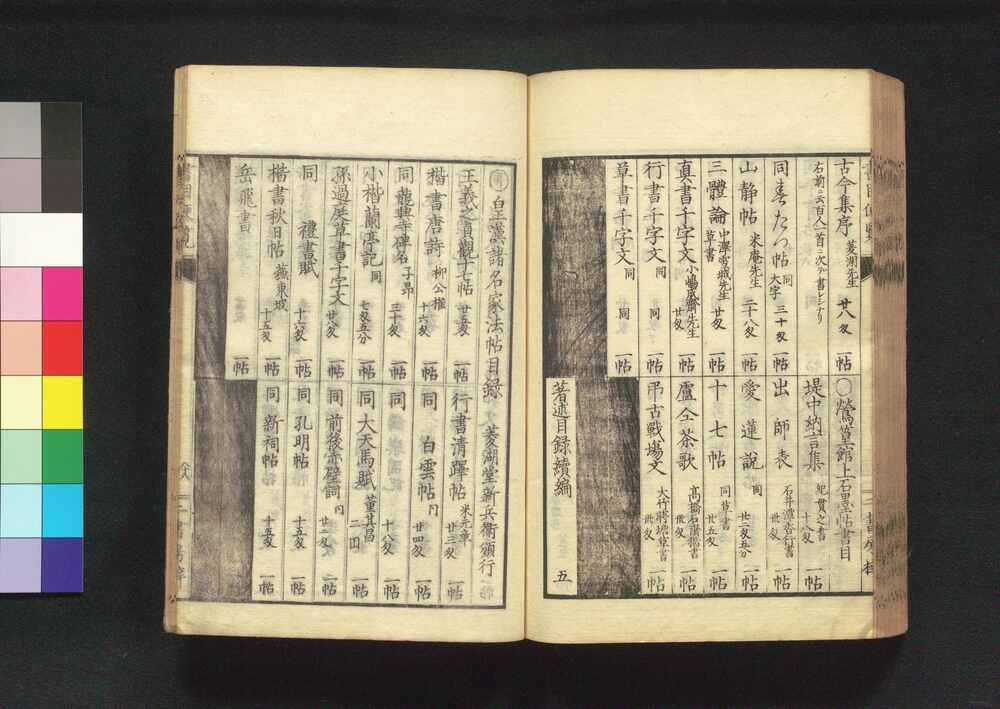 古今集序 菱湖先生 廿八匁 一帖
右前ニ云百人一首ニ次テ書レシナリ
同 春たつ帖 同 大字 三十匁 一帖
山静帖 米庵先生 二十八匁 一帖
三體論 中澤雪城先生 草書 廿匁 一帖
真書千字文 小嶋成齋先生 廿匁 一帖
行書千字文 同 同 一帖
草書千字文 同 同 一帖
〇鶯篁館上石墨帖書目
堤中納言集 紀貫之書 十八匁 一帖
出師表 石井澤吉行書 廿匁 一帖
愛蓮説 同 廿二匁五分 一帖
十七帖 同草書 廿五匁 一帖
盧仝茶歌 高橋石讃楷書 廿匁 一帖
弔古戰場文 大竹蒋塘草書 廿匁 一帖
著述目録續編 五
皇漢諸名家法帖目録 菱湖堂新兵衛頒行
王羲之貞觀十七帖 廿五匁 一帖
楷書唐詩 柳公權 十六匁 一帖
同龍興寺碑名 子昂 三十匁 一帖
小楷蘭亭記 同 七匁五分 一帖
孫過庭草書千字文 廿八匁 一帖
同 禮書賦 十六匁 一帖
楷書秋日帖 蘓東坡 十五匁 一帖
岳飛書 一帖
行書清躍帖 米元章 廿三匁 一帖
同 白雲帖 同 廿四匁 一帖
同 十八匁 一帖
同 大天馬賦 董其昌 一帖
同 前後赤壁詞 同 一帖
同 孔明帖 十五匁 一帖
同 新祠帖 十五匁 一帖